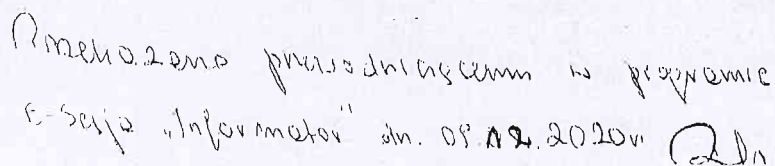 Przekazano przewodniczącemu w programie
e-Sesja "Informator" dn. 08.12.2020r.